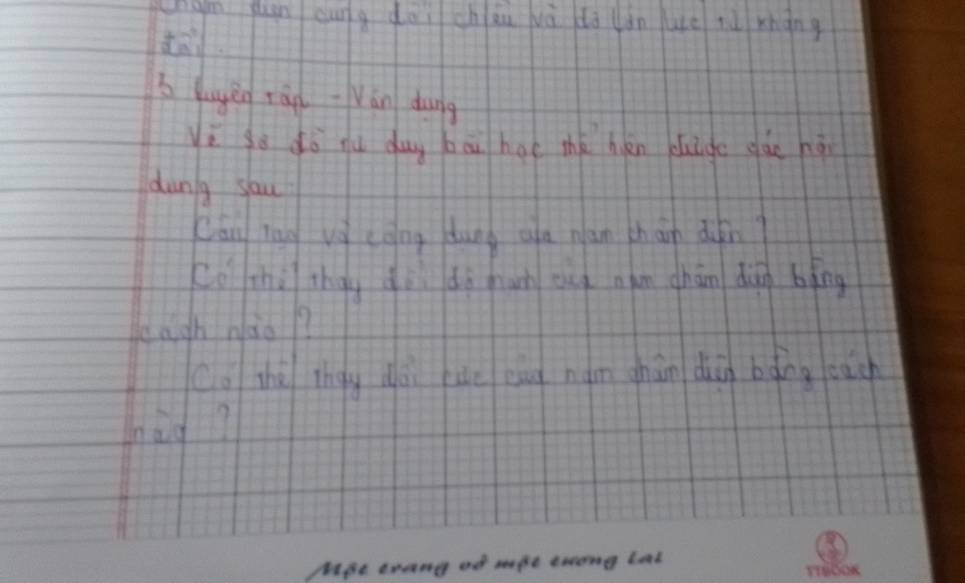 châm điện cũng đổi chiều và độ lớn lực từ không
đổi.
3 Luyện tập - Vận dụng
Vẽ sơ đồ tư duy bài học thể hiện được các nội
dung sau
Cấu tạo và công dụng của nam châm điện?
Có thể thay đổi độ mạnh của nam châm điện bằng
cách nào?
Có thể thay đổi cực của nam châm điện bằng cách
nào?
TTBOOK